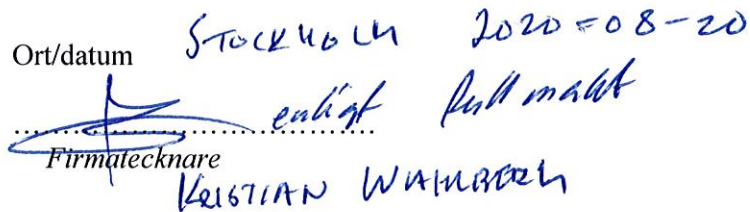 Ort/datum STOCKHOLM 2020-08-20
enligt fullmakt
Firmatecknare
KRISTIAN WAHLBERG